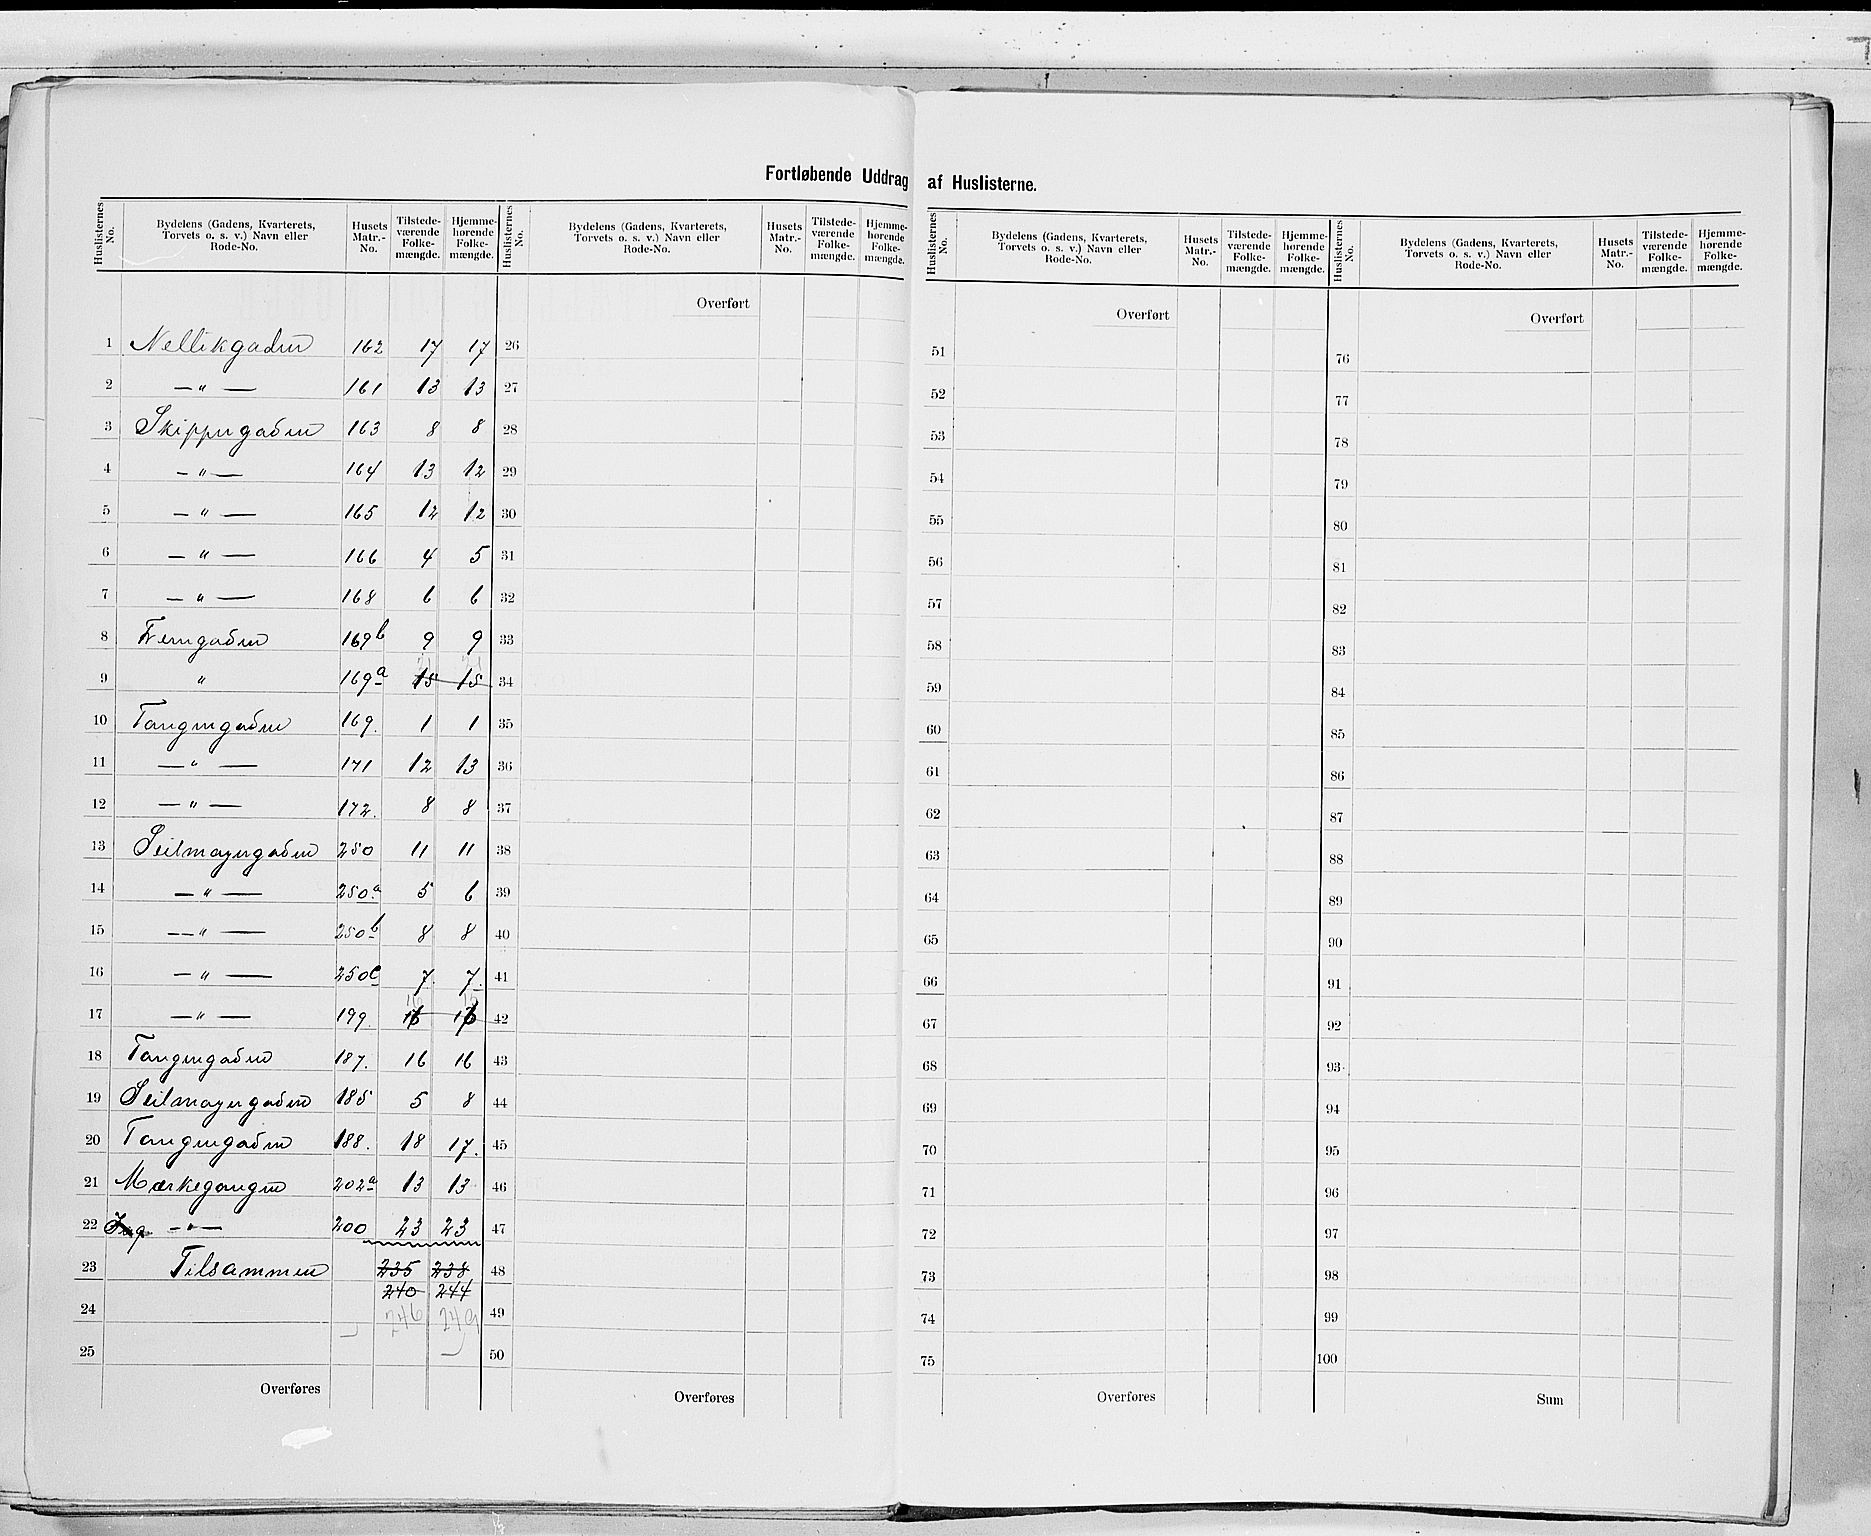 Fortløbende Uddrag af Huslisterne.
Huslisternes No. | Bydelens (Gadens, Kvarterets, Torvets o. s. v.) Navn eller Rode-No. | Husets Matr.-No. | Tilstedeværende Folkemængde. | Hjemmehørende Folkemængde. | Huslisternes No. | Bydelens (Gadens, Kvarterets, Torvets o. s. v.) Navn eller Rode-No. | Husets Matr.-No. | Tilstedeværende Folkemængde. | Hjemmehørende Folkemængde. | Huslisternes No. | Bydelens (Gadens, Kvarterets, Torvets o. s. v.) Navn eller Rode-No. | Husets Matr.-No. | Tilstedeværende Folkemængde. | Hjemmehørende Folkemængde. | Huslisternes No. | Bydelens (Gadens, Kvarterets, Torvets o. s. v.) Navn eller Rode-No. | Husets Matr.-No. | Tilstedeværende Folkemængde. | Hjemmehørende Folkemængde.
Overført Overført Overført
1 Nellikgaden 162 17 17 26 51 76
2 — " — 161 13 13 27 52 77
3 Skippergaden 163 8 8 28 53 78
4 — " — 164 13 12 29 54 79
5 — " — 165 12 12 30 55 80
6 — " — 166 4 5 31 56 81
7 — " — 168 6 6 32 57 82
8 169b 9 9 33 58 83
9 " 169a 15 15 34 59 84
10 Tangengaden 169. 1 1 35 60 85
11 — " — 171 12 13 36 61 86
12 — " — 172. 8 8 37 62 87
13 Seilmagergaden 250 11 11 38 63 88
14 — " — 250a 5 6 39 64 89
15 — " — 250b 8 8 40 65 90
16 — " — 250c 7 7 41 66 91
17 — " — 199. 16 16 42 67 92
18 Tangengaden 187. 16 16 43 68 93
19 Seilmagergaden 185 5 8 44 69 94
20 Tangengaden 188. 18 17. 45 70 95
21 Mærkegangen 202a 13 13 46 71 96
22 — " — 200 23 23 47 72 97
23 Tilsammen 235 238 48 73 98
240 244
24 246 249 49 74 99
25 50 75 100
Overføres Overføres Overføres Sum